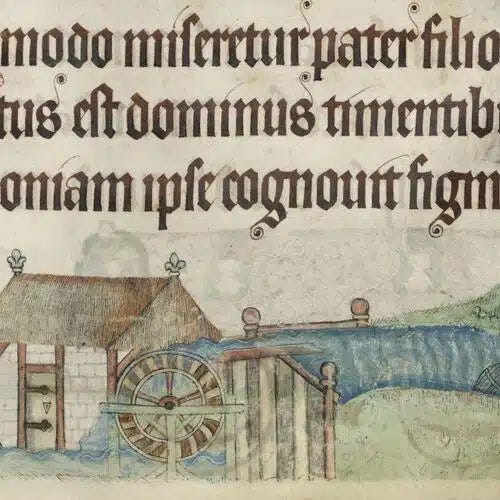 modo miseretur pater filio
tus est dominus timentib
oniam ipse cognouit figm